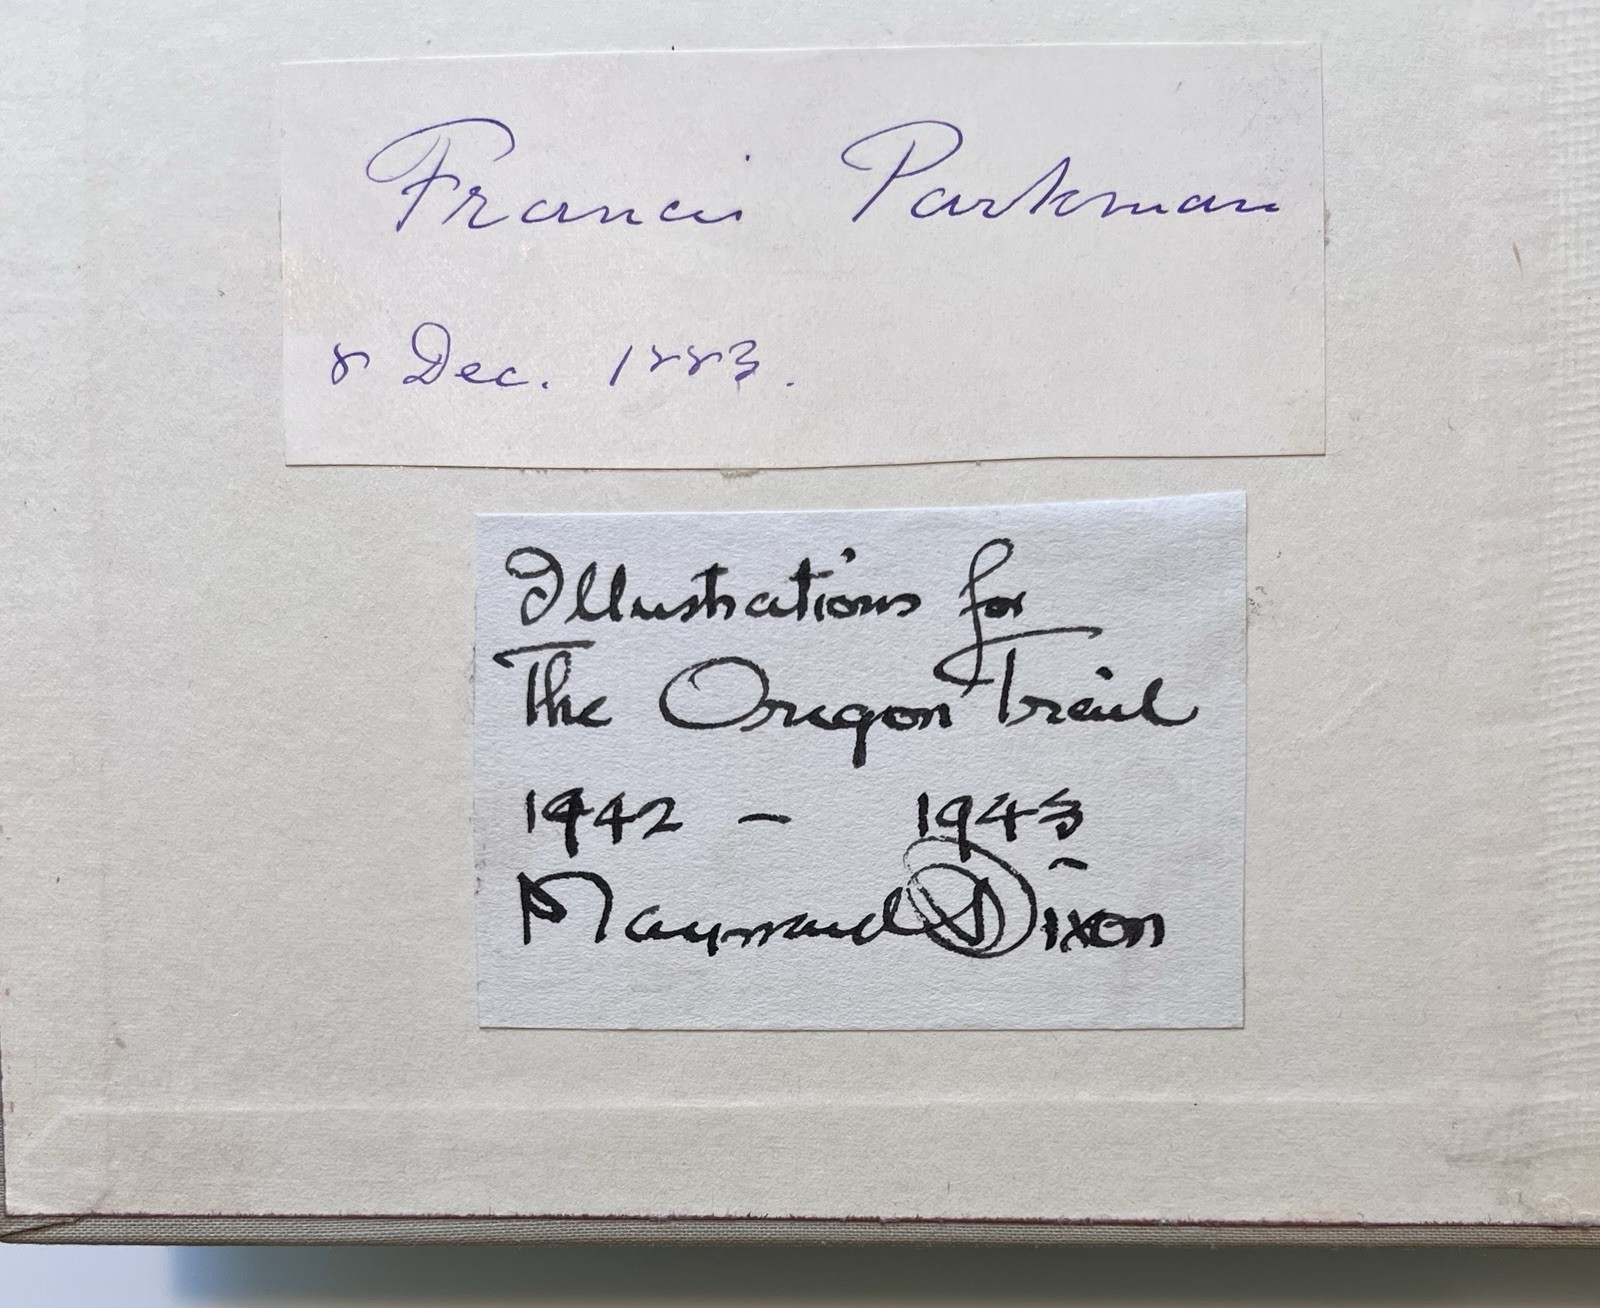 Francis Parkman
8 Dec. 1883.
Illustrations for
The Oregon Trail
1942 – 1943
Maynard Dixon